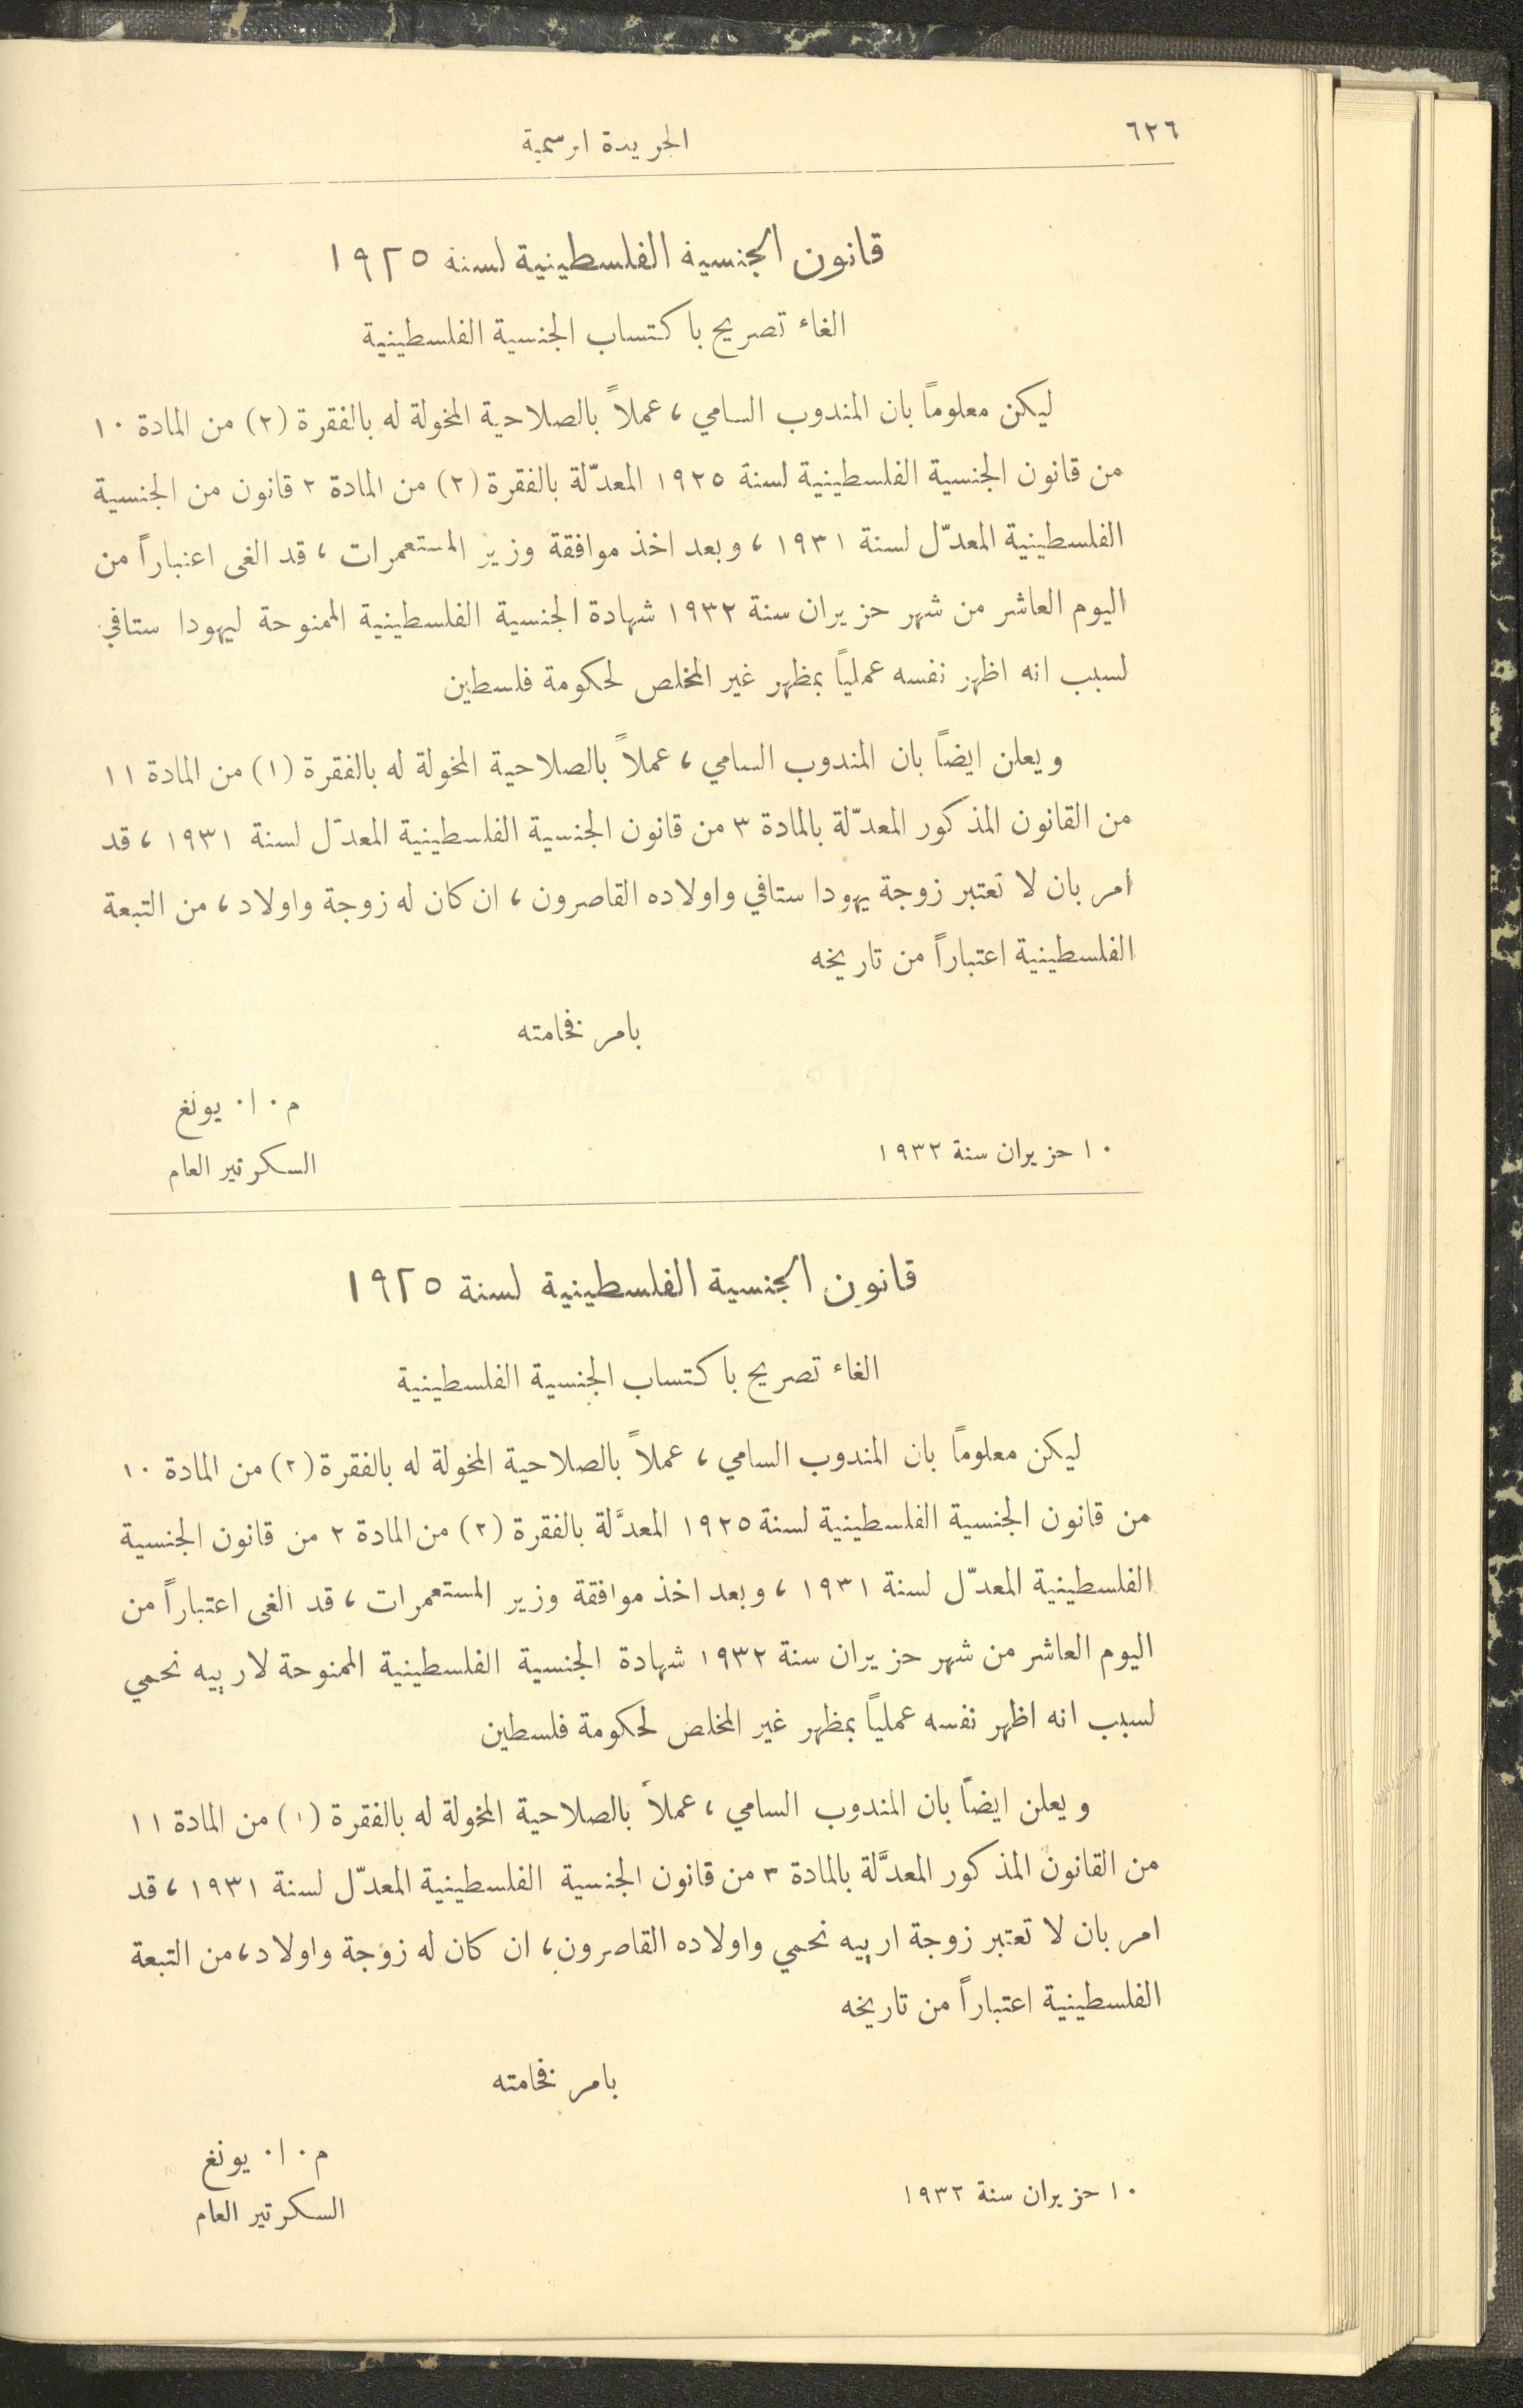 ٦٢٦
الجريدة ارسمية
قانون الجنسية الفلسطينية لسنة ١٩٢٥
الغاء تصريح باكتساب الجنسية الفلسطينية
ليكن معلوماً بان المندوب السامي، عملاً بالصلاحية المخولة له بالفقرة (٢) من المادة ١٠
من قانون الجنسية الفلسطينية لسنة ١٩٢٥ المعدّلة بالفقرة (٢) من المادة ٢ قانون من الجنسية
الفلسطينية المعدّل لسنة ١٩٣١، وبعد اخذ موافقة وزير المستعمرات، قد الغى اعتباراً من
اليوم العاشر من شهر حزيران سنة ١٩٣٢ شهادة الجنسية الفلسطينية الممنوحة ليهودا ستافي
لسبب انه اظهر نفسه عملياً بمظهر غير المخلص لحكومة فلسطين
ويعلن ايضاً بان المندوب السامي، عملاً بالصلاحية المخولة له بالفقرة (١) من المادة ١١
من القانون المذكور المعدّلة بالمادة ٣ من قانون الجنسية الفلسطينية المعدّل لسنة ١٩٣١، قد
امر بان لا تعتبر زوجة يهودا ستافي واولاده القاصرون، ان كان له زوجة واولاد، من التبعة
الفلسطينية اعتباراً من تاريخه
بامر فخامته
م٠ ا٠ يونغ
١٠ حزيران سنة ١٩٣٢
السكرتير العام
قانون الجنسية الفلسطينية لسنة ١٩٢٥
الغاء تصريح باكتساب الجنسية الفلسطينية
ليكن معلوماً بان المندوب السامي، عملاً بالصلاحية المخولة له بالفقرة (٢) من المادة ١٠
من قانون الجنسية الفلسطينية لسنة ١٩٢٥ المعدَّلة بالفقرة (٢) من المادة ٢ من قانون الجنسية
الفلسطينية المعدّل لسنة ١٩٣١، وبعد اخذ موافقة وزير المستعمرات، قد الغى اعتباراً من
اليوم العاشر من شهر حزيران سنة ١٩٣٢ شهادة الجنسية الفلسطينية الممنوحة لاربيه نحمي
لسبب انه اظهر نفسه عملياً بمظهر غير المخلص لحكومة فلسطين
ويعلن ايضاً بان المندوب السامي، عملاً بالصلاحية المخولة له بالفقرة (١) من المادة ١١
من القانون المذكور المعدَّلة بالمادة ٣ من قانون الجنسية الفلسطينية المعدّل لسنة ١٩٣١، قد
امر بان لا تعتبر زوجة اربيه نحمي واولاده القاصرون، ان كان له زوجة واولاد، من التبعة
الفلسطينية اعتباراً من تاريخه
بامر فخامته
م٠ ا٠ يونغ
١٠ حزيران سنة ١٩٣٢
السكرتير العام